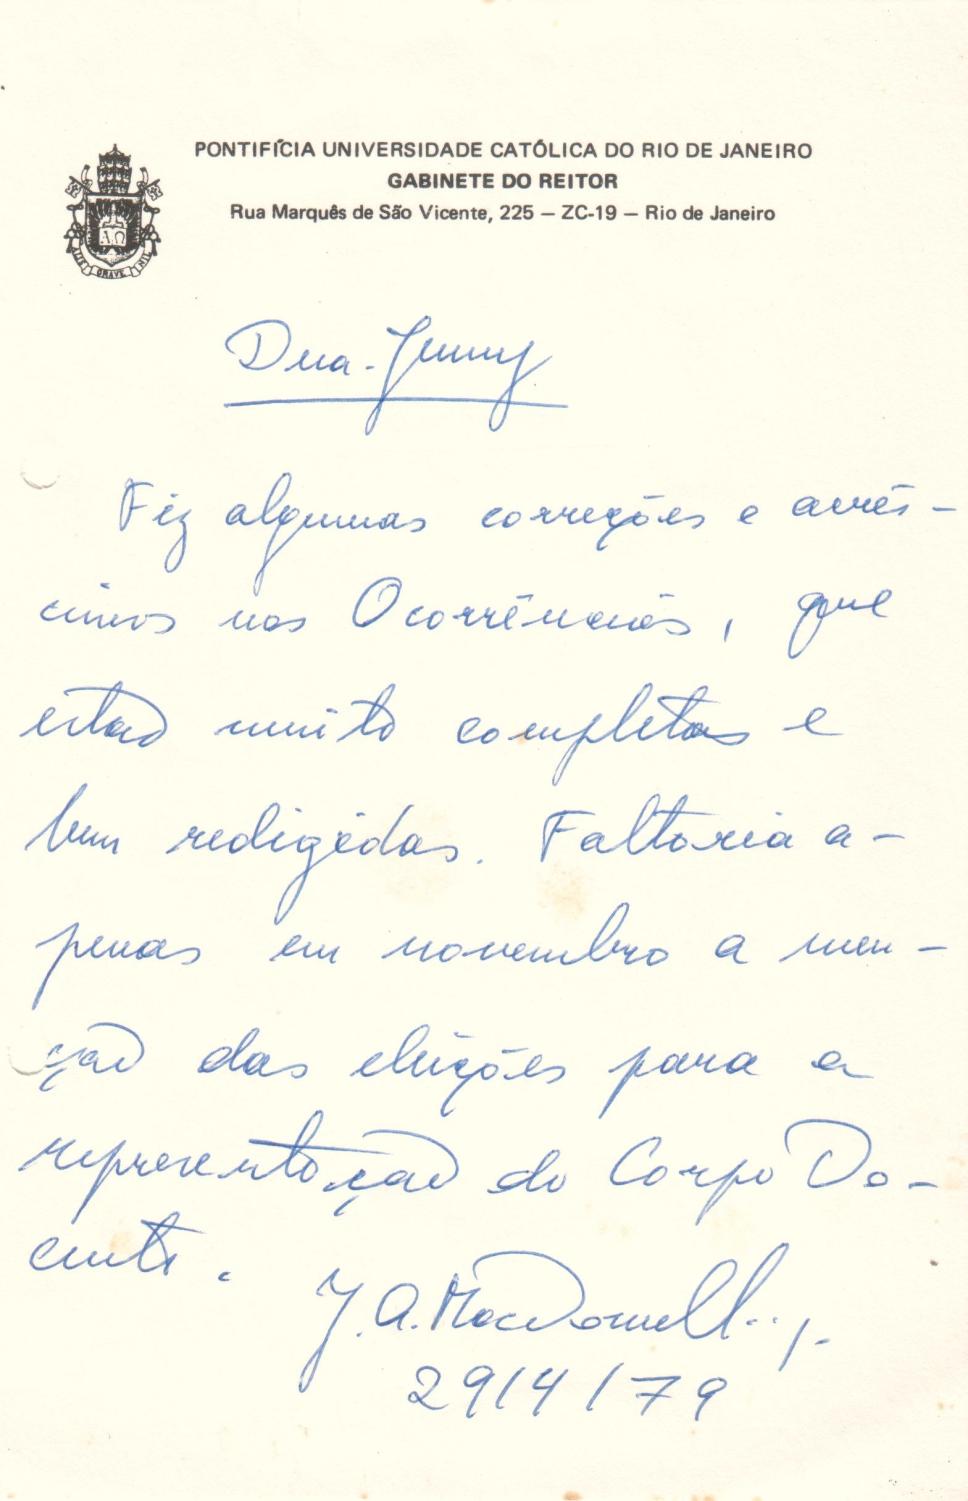 PONTIFÍCIA UNIVERSIDADE CATÓLICA DO RIO DE JANEIRO
GABINETE DO REITOR
Rua Marquês de São Vicente, 225 – ZC-19 – Rio de Janeiro
ALIS GRAVE NIL
A Ω
Dna. Jenny
Fiz algumas correções e acrés-
cimos nas Ocorrências, que
estão muito completas e
bem redigidas. Faltaria a-
penas em novembro a men-
ção das eleições para a
representação do Corpo Do-
cente.
J. A. MacDowell s.j.
29/4/79